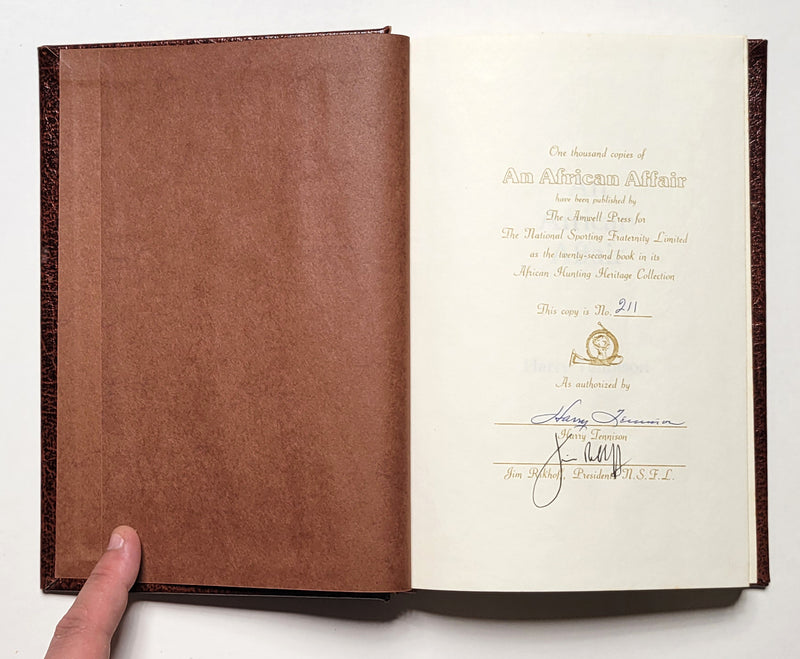 One thousand copies of
An African Affair
have been published by
The Amwell Press for
The National Sporting Fraternity Limited
as the twenty-second book in its
African Hunting Heritage Collection
This copy is No. 211
As authorized by
Harry Tennison
Harry Tennison
Jim Rikhoff
Jim Rikhoff, President N.S.F.L.